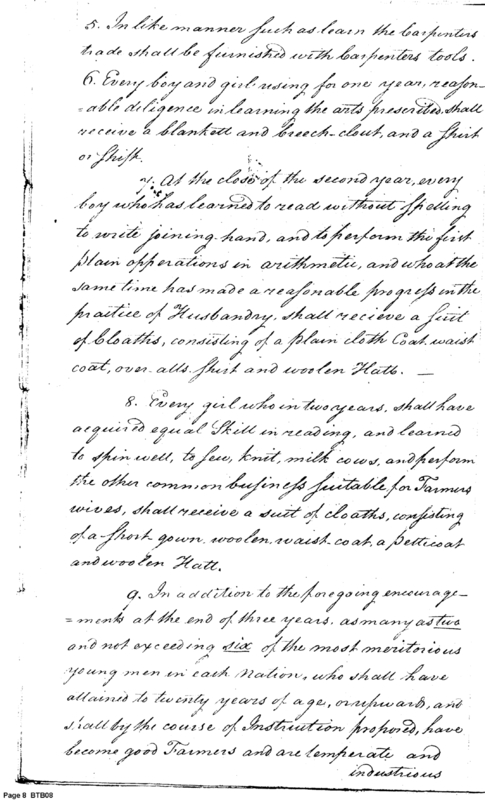 5. In like manner such as learn the Carpenters
trade shall be furnished with Carpenters tools.
6. Every boy and girl using for one year, reason-
=able deligence in learning the arts prescribed shall
receive a blankett and breech-clout, and a Shirt
or Shift.
7. At the close of the second year, every
boy who has learned to read without Spelling
to write joining-hand, and to perform the first
plain opperations in arithmetic, and who at the
same time has made a reasonable progress in the
practice of Husbandry, shall recieve a Suit
of Cloaths, consisting of a plain cloth Coat, waist
coat, over-alls Shirt and woolen Hatt. —
8. Every girl who in two years, shall have
acquired equal Skill in reading, and learned
to spin well, to sew, knit, milk cows, and perform
the other common business suitable for Farmers
wives, shall receive a suit of cloaths, consisting
of a short gown, woolen waist-coat, a petticoat
and woolen Hatt.
9. In addition to the foregoing encourage-
=ments at the end of three years, as many as two
and not exceeding six of the most meritorious
young men in each Nation, who shall have
attained to twenty years of age, or upwards, and
shall by the course of Instruction proposed, have
become good Farmers and are temperate and
industrious
Page 8 BTB08